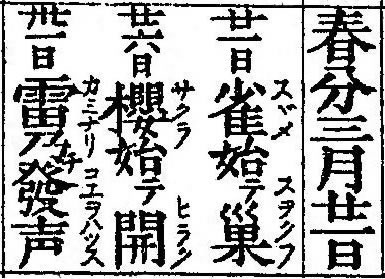 春分三月廿一日
スヾメ スヲクフ
廿一日 雀始テ巣
サクラ ヒラク
廿六日 櫻始テ開
カミナリ コエヲハツス
卅一日 雷乃チ發声